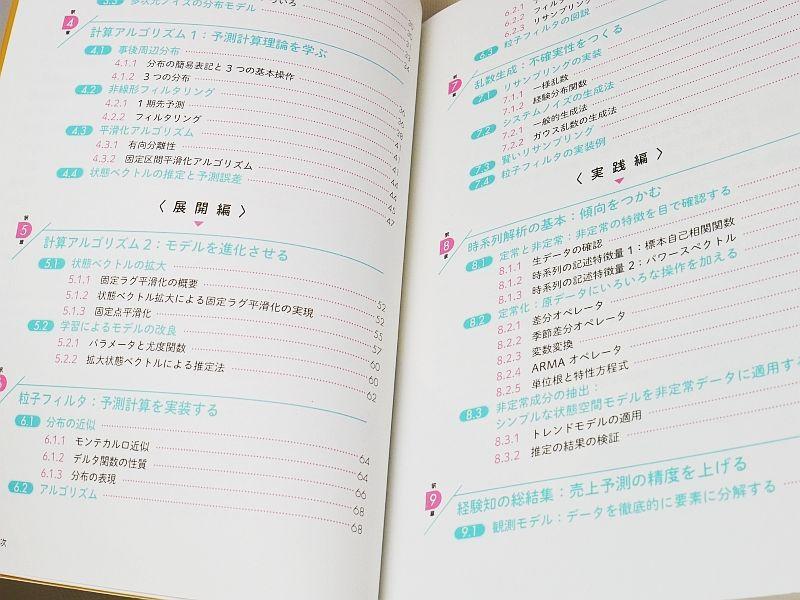 3.3 多次元ノイズの分布モデル
第4章
計算アルゴリズム1：予測計算理論を学ぶ
4.1 事後周辺分布
4.1.1 分布の簡易表記と3つの基本操作
4.1.2 3つの分布
4.2 非線形フィルタリング
4.2.1 1期先予測
4.2.2 フィルタリング
4.3 平滑化アルゴリズム
4.3.1 有向分離性
4.3.2 固定区間平滑化アルゴリズム
4.4 状態ベクトルの推定と予測誤差
〈展開編〉
第5章
計算アルゴリズム2：モデルを進化させる
5.1 状態ベクトルの拡大
5.1.1 固定ラグ平滑化の概要 52
5.1.2 状態ベクトル拡大による固定ラグ平滑化の実現 52
5.1.3 固定点平滑化 55
5.2 学習によるモデルの改良 57
5.2.1 パラメータと尤度関数 60
5.2.2 拡大状態ベクトルによる推定法 60
62
粒子フィルタ：予測計算を実装する
6.1 分布の近似
6.1.1 モンテカルロ近似 64
6.1.2 デルタ関数の性質 64
6.1.3 分布の表現 66
6.2 アルゴリズム 68
68
次
6.2.1
6.2.2 リサンプリング
6.3 粒子フィルタの図説
第7章
乱数生成：不確実性をつくる
7.1 リサンプリングの実装
7.1.1 一様乱数
7.1.2 経験分布関数
7.2 システムノイズの生成法
7.2.1 一般的生成法
7.2.2 ガウス乱数の生成法
7.3 賢いリサンプリング
7.4 粒子フィルタの実装例
〈実践編〉
第8章
時系列解析の基本：傾向をつかむ
8.1 定常と非定常：非定常の特徴を目で確認する
8.1.1 生データの確認
8.1.2 時系列の記述特徴量1：標本自己相関関数
8.1.3 時系列の記述特徴量2：パワースペクトル
8.2 定常化：原データにいろいろな操作を加える
8.2.1 差分オペレータ
8.2.2 季節差分オペレータ
8.2.3 変数変換
8.2.4 ARMA オペレータ
8.2.5 単位根と特性方程式
8.3 非定常成分の抽出：
シンプルな状態空間モデルを非定常データに適用する
8.3.1 トレンドモデルの適用
8.3.2 推定の結果の検証
第9章
経験知の総結集：売上予測の精度を上げる
9.1 観測モデル：データを徹底的に要素に分解する